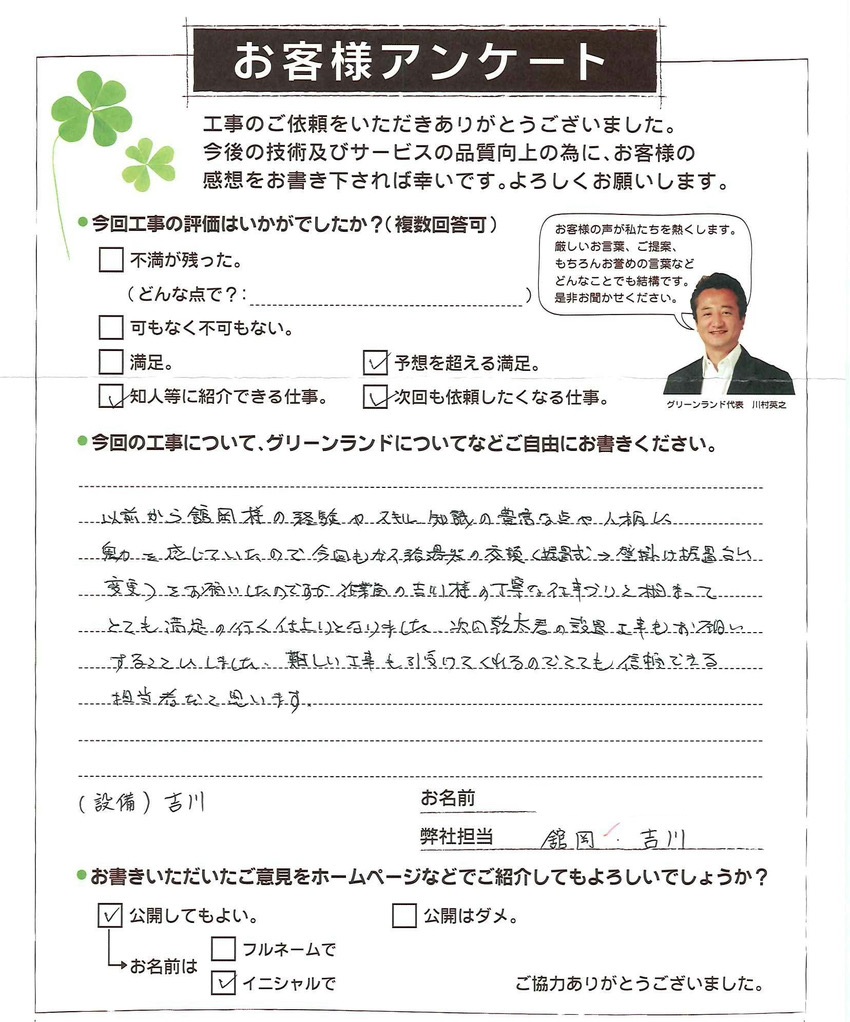 お客様アンケート
工事のご依頼をいただきありがとうございました。
今後の技術及びサービスの品質向上の為に、お客様の
感想をお書き下されば幸いです。よろしくお願いします。
今回工事の評価はいかがでしたか?(複数回答可)
不満が残った。
(どんな点で?: )
可もなく不可もない。
満足。
予想を超える満足。
知人等に紹介できる仕事。
次回も依頼したくなる仕事。
お客様の声が私たちを熱くします。
厳しいお言葉、ご提案、
もちろんお誉めの言葉など
どんなことでも結構です。
是非お聞かせください。
グリーンランド代表 川村英之
今回の工事について、グリーンランドについてなどご自由にお書きください。
以前から舘岡様の経験やスキル知識の豊富な点や人柄に
魅力を感じていたので今回もガス給湯器の交換(据置式→壁掛け据置台に
変更)をお願いしたのですが作業員の吉川様の丁寧な仕事づりと相まって
とても満足の行く仕上りとなりました 次回乾太君の設置工事もお願い
することにしました、難しい工事も引受けてくれるのでとても信頼できる
担当者だと思います。
(設備)吉川
お名前
弊社担当 舘岡・吉川
お書きいただいたご意見をホームページなどでご紹介してもよろしいでしょうか?
公開してもよい。
公開はダメ。
お名前は
フルネームで
イニシャルで
ご協力ありがとうございました。